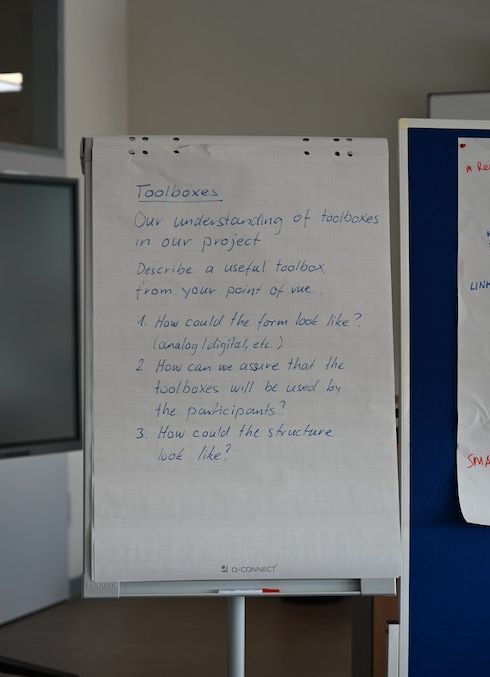 Toolboxes
Our understanding of toolboxes
in our project
Describe a useful toolbox
from your point of vue.
1. How could the form look like?
(analog/digital, etc.)
2. How can we assure that the
toolboxes will be used by
the participants?
3. How could the structure
look like?
Q-CONNECT
LINK
SMA